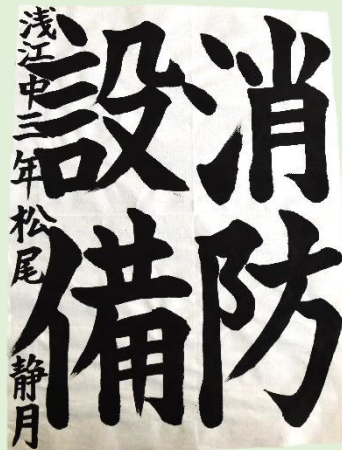 消防
設備
浅江中三年松尾静月